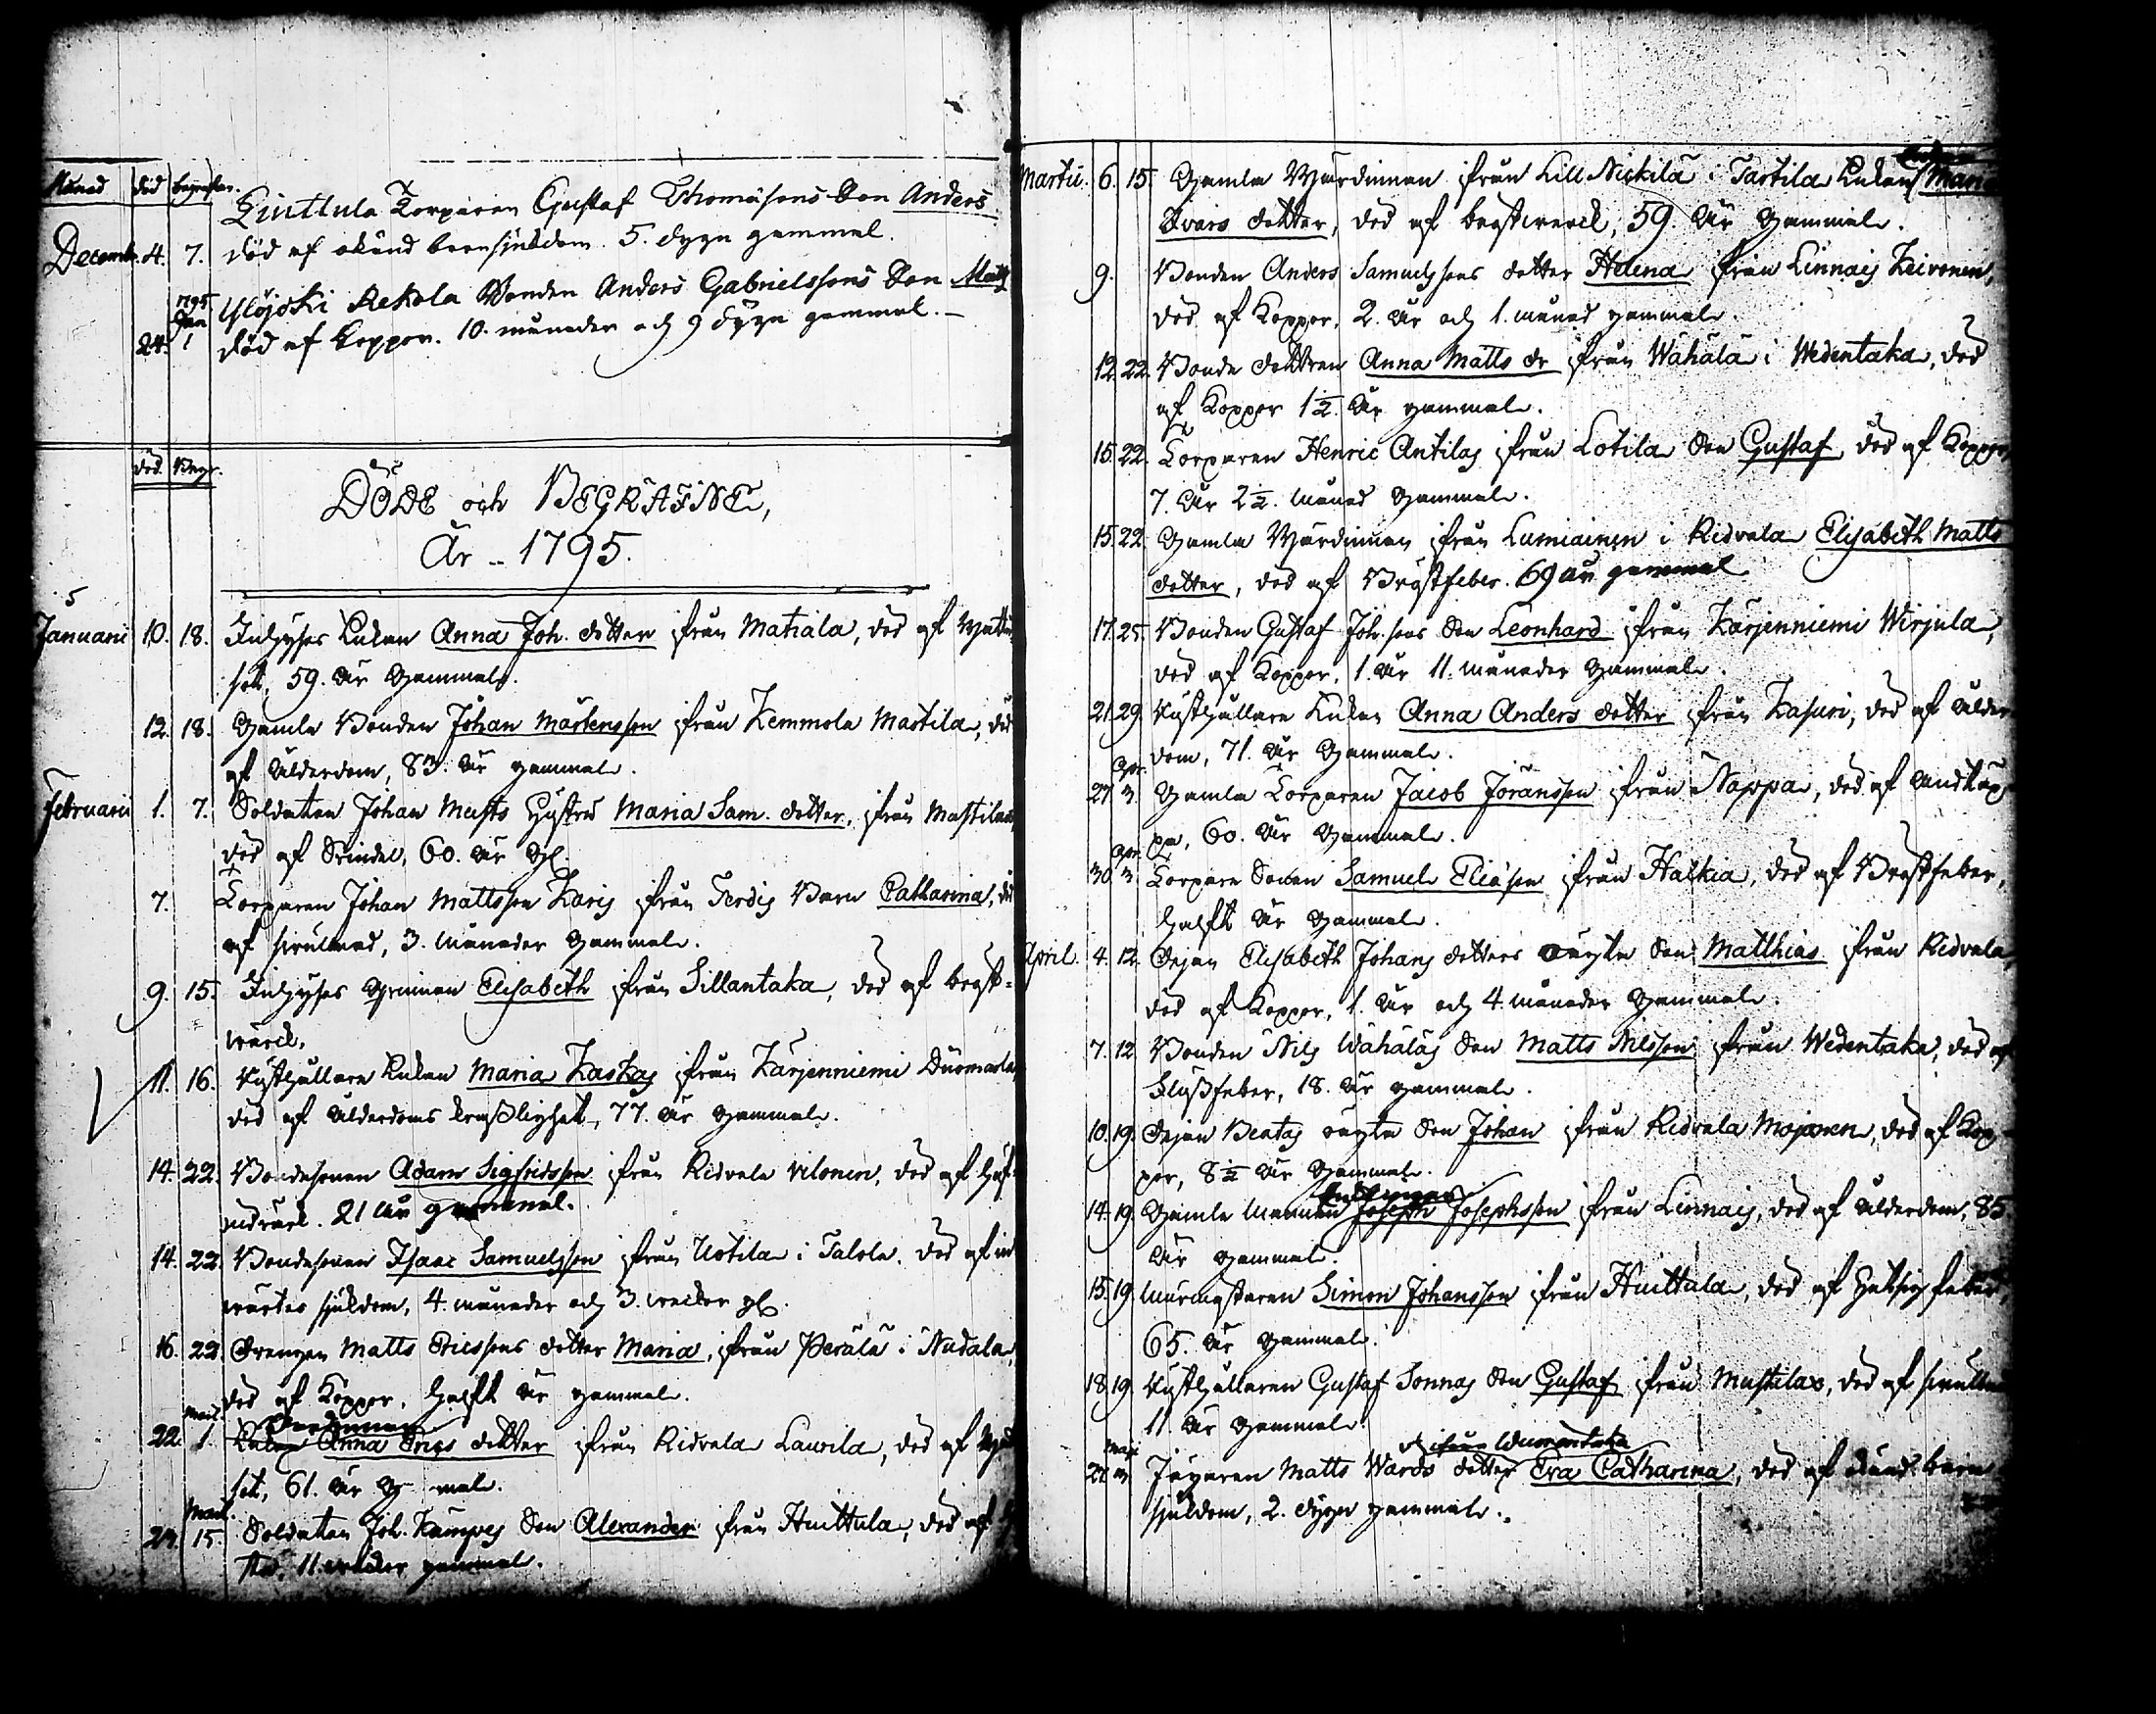 Månad död begrafne.
Huittula Torparen Gustaf Thomæsons Son Anders
Decemb. 4. 7. död af okänd barnsjukdom. 5. dygn gammal.
1795 Jan Ylöjoki Rekola Bonden Anders Gabrielssons Son Matts
24. 1 död af Koppor. 10. månader och 9 dygn gammal.
död. Begr.
DÖDE och BEGRAFNE,
År 1795.
Januarii 10. 18. Inhyses Enkan Anna Joh. dotter ifrån Matiala, död af
sot, 59. år gammal.
12. 18. Gamla Bonden Johan Mårtensson ifrån Kemmola Martila, död
af ålderdom, 83. år gammal.
Februarii 1. 7. Soldaten Johan Musts Hustru Maria Sam. dotter, ifrån Mustila,
död af 60. år
7. Torparen Johan Mattsson ifrån Barn Catharina, död
af 3. månader gammal.
9. 15. Inhyses Qvinnan Elisabeth ifrån Sillantaka, död af bröst-
wärck.
11. 16. Rusthållare Enkan Maria Kaskas ifrån Kärjenniemi
död af ålderdoms bräcklighet, 77. år gammal.
14. 22. Bondesonen Adam Sigfridsson ifrån Ridvala Vilonen, död af
21 år gammal.
14. 22. Bondesonen Isaac Samuelsson ifrån Uotila i Talola. död af in
wärtes sjukdom, 4. månader och 3. weckor gl.
16. 22. Drengen Matts Ericssons dotter Maria, ifrån Perälä i Nudala,
död af Koppor, halft år gammal.
Mart.
22. 1. Enkan Anna Erics dotter ifrån Ridvala Laurila, död af
sot, 61. år
Mart.
24. 15. Soldaten Joh. Kämpes Son Alexander ifrån Huittula, död af
11. weckor gammal.
Martii. 6. 15. Gamla Wärdinnan ifrån Lill Nickilä i Tartila Enkan Maria
Ivars dotter, död af bröstwerck, 59. år gammal.
9. Bonden Anders Samuelssons dotter Helena ifrån Linnais Keivonen,
död af Koppor, 2. år och 1. månad gammal.
12. 22. Bonde dottren Anna Matts dr ifrån Wähälä i Wedentaka, död
af Koppor 1½ år gammal.
15. 22. Torparen Henric Antilas ifrån Lotila Son Gustaf, död af Koppor,
7. år 2½. månad gammal.
15. 22. Gamla Wärdinnan ifrån Lumiainen i Ridvala Elisabeth Matts
dotter, död af Bröstfeber. 69 år gammal
17. 25. Bonden Gustaf Joh. sons Son Leonhard ifrån Kärjenniemi Wirjula,
död af Koppor, 1. år 11. månader gammal.
21. 29. Rusthållare Enkan Anna Anders dotter ifrån Kasuri, död af ålder
dom, 71. år gammal.
Apr.
27 3. Gamla Torparen Jacob Jöransson ifrån Nappa, död af Andtäp
pa, 60. år gammal.
Apr.
30. 3 Torpare Sonen Samuel Eliæson ifrån Haikia, död af Bröstfeber,
halft år gammal.
April. 4. 12. Pigan Elisabeth Johans dotters oägta Son Matthias ifrån Ridvala,
död af Koppor, 1. år och 4. månader gammal.
7. 12. Bonden Nils Wähäläs Son Matts Nilsson ifrån Wedentaka, död af
Flussfeber, 18. år gammal.
10. 19. Pigan Beatas oägta Son Johan ifrån Ridvala Mojonen, död af Kop
por, 8½ år gammal.
14. 19. Gamla Mannen Joseph Josephsson ifrån Linnais, död af ålderdom, 85
år gammal.
15. 19. Murmästaren Simon Johansson ifrån Huittula, död af hetsig feber,
65. år gammal.
18. 19. Rusthållaren Gustaf Sonnas Son Gustaf ifrån Mustila, död af
11. år gammal.
Maji
3 Jägaren Matts Wards dotter Eva Catharina, död af okänd barn
sjukdom, 2. dygn gammal.